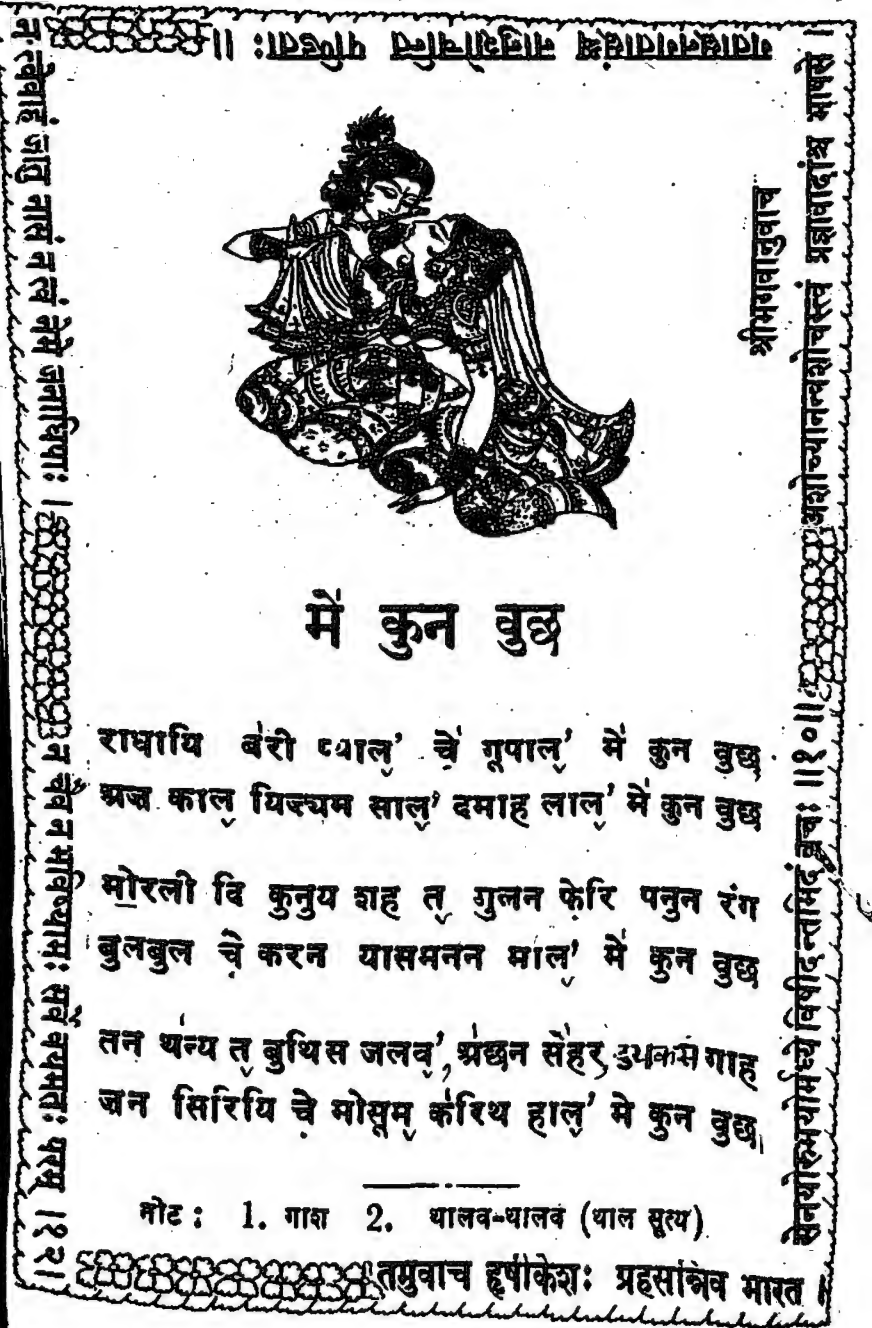 गतासूनगतासूंश्च नानुशोचन्ति पण्डिताः ॥
श्रीभगवानुवाच
अशोच्यानन्वशोचस्त्वं प्रज्ञावादांश्च भाषसे ।
में कुन वुछ
राधायि बॅरी प्याल॒' चे॑ गूपाल॒' में कुन वुछ
अज़ काल॒ यिज़्यम साल॒' दमाह लाल॒' में कुन वुछ
मोरली दि कुनुय शह त॒ गुलन फेरि पनुन रंग
बुलबुल चे़ करन यासमनन माल॒' में कुन वुछ
तन थ॑न्य त॒ बुथिस जलव॒', अ॑छन से॑हर गाह
ज़न सिरियि चे़ मोसूम॒ क॑रिथ हाल॒' मे कुन वुछ
नोट : 1. गाश 2. थालव-थालव (थाल सूत्य)
तमुवाच हृषीकेशः प्रहसन्निव भारत ।
सेनयोरुभयोर्मध्ये विषीदन्तमिदं वचः ॥१०॥
न त्वेवाहं जातु नासं न त्वं नेमे जनाधिपाः ।
न चैव न भविष्यामः सर्वे वयमतः परम् ।१२।